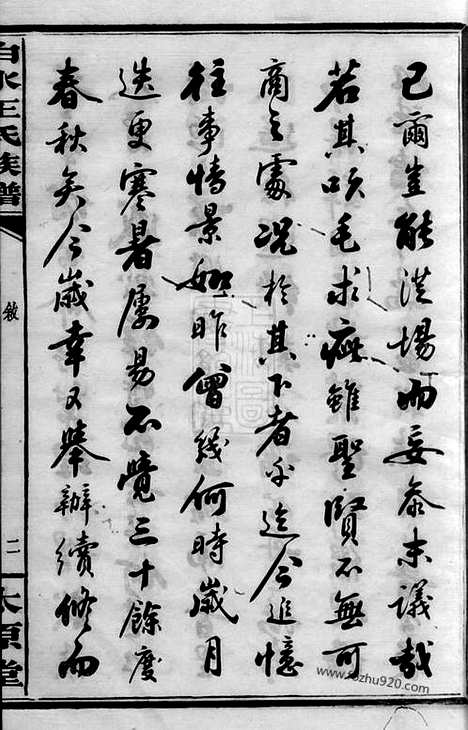 已爾豈能洪場而妄參末議哉
若其吹毛求疵雖聖賢不無可
商之處況於其下者乎迄今追憶
往事情景如昨曾幾何時歲月
迭更寒暑屢易不覺三十餘度
春秋矣今歲幸又舉辦續修而
白水王氏族譜
敘
二
太原堂
www.zozhu920.com